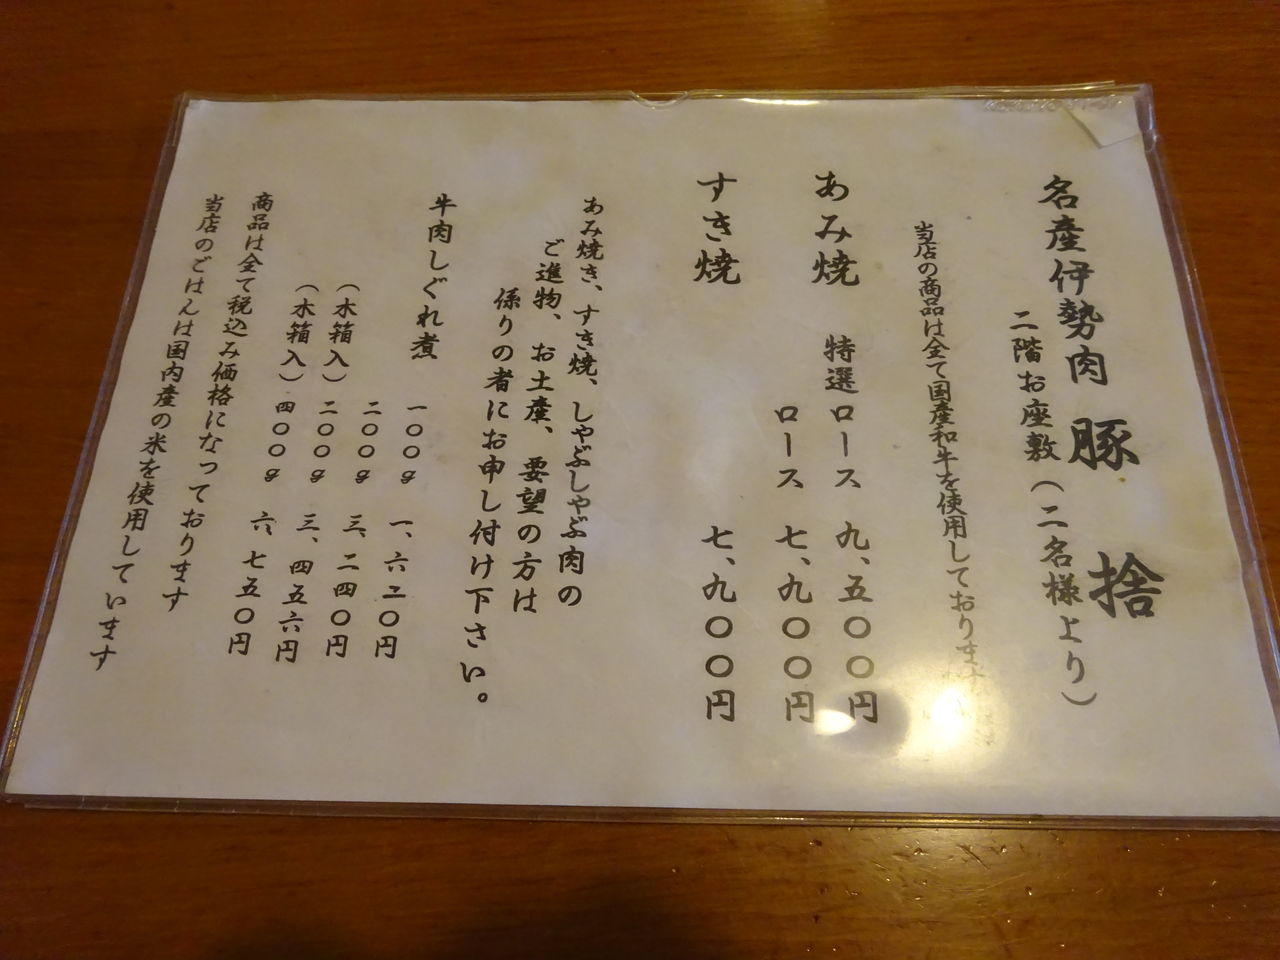 名産伊勢肉 豚捨
二階お座敷(二名様より)
当店の商品は全て国産和牛を使用しております
あみ焼 特選ロース 九、五〇〇円
ロース 七、九〇〇円
すき焼 七、九〇〇円
あみ焼き、すき焼、しゃぶしゃぶ肉の
ご進物、お土産、要望の方は
係りの者にお申し付け下さい。
牛肉しぐれ煮 一〇〇g 一、六二〇円
二〇〇g 三、二四〇円
(木箱入) 二〇〇g 三、四五六円
(木箱入) 四〇〇g 六、七五〇円
商品は全て税込み価格になっております
当店のごはんは国内産の米を使用しています